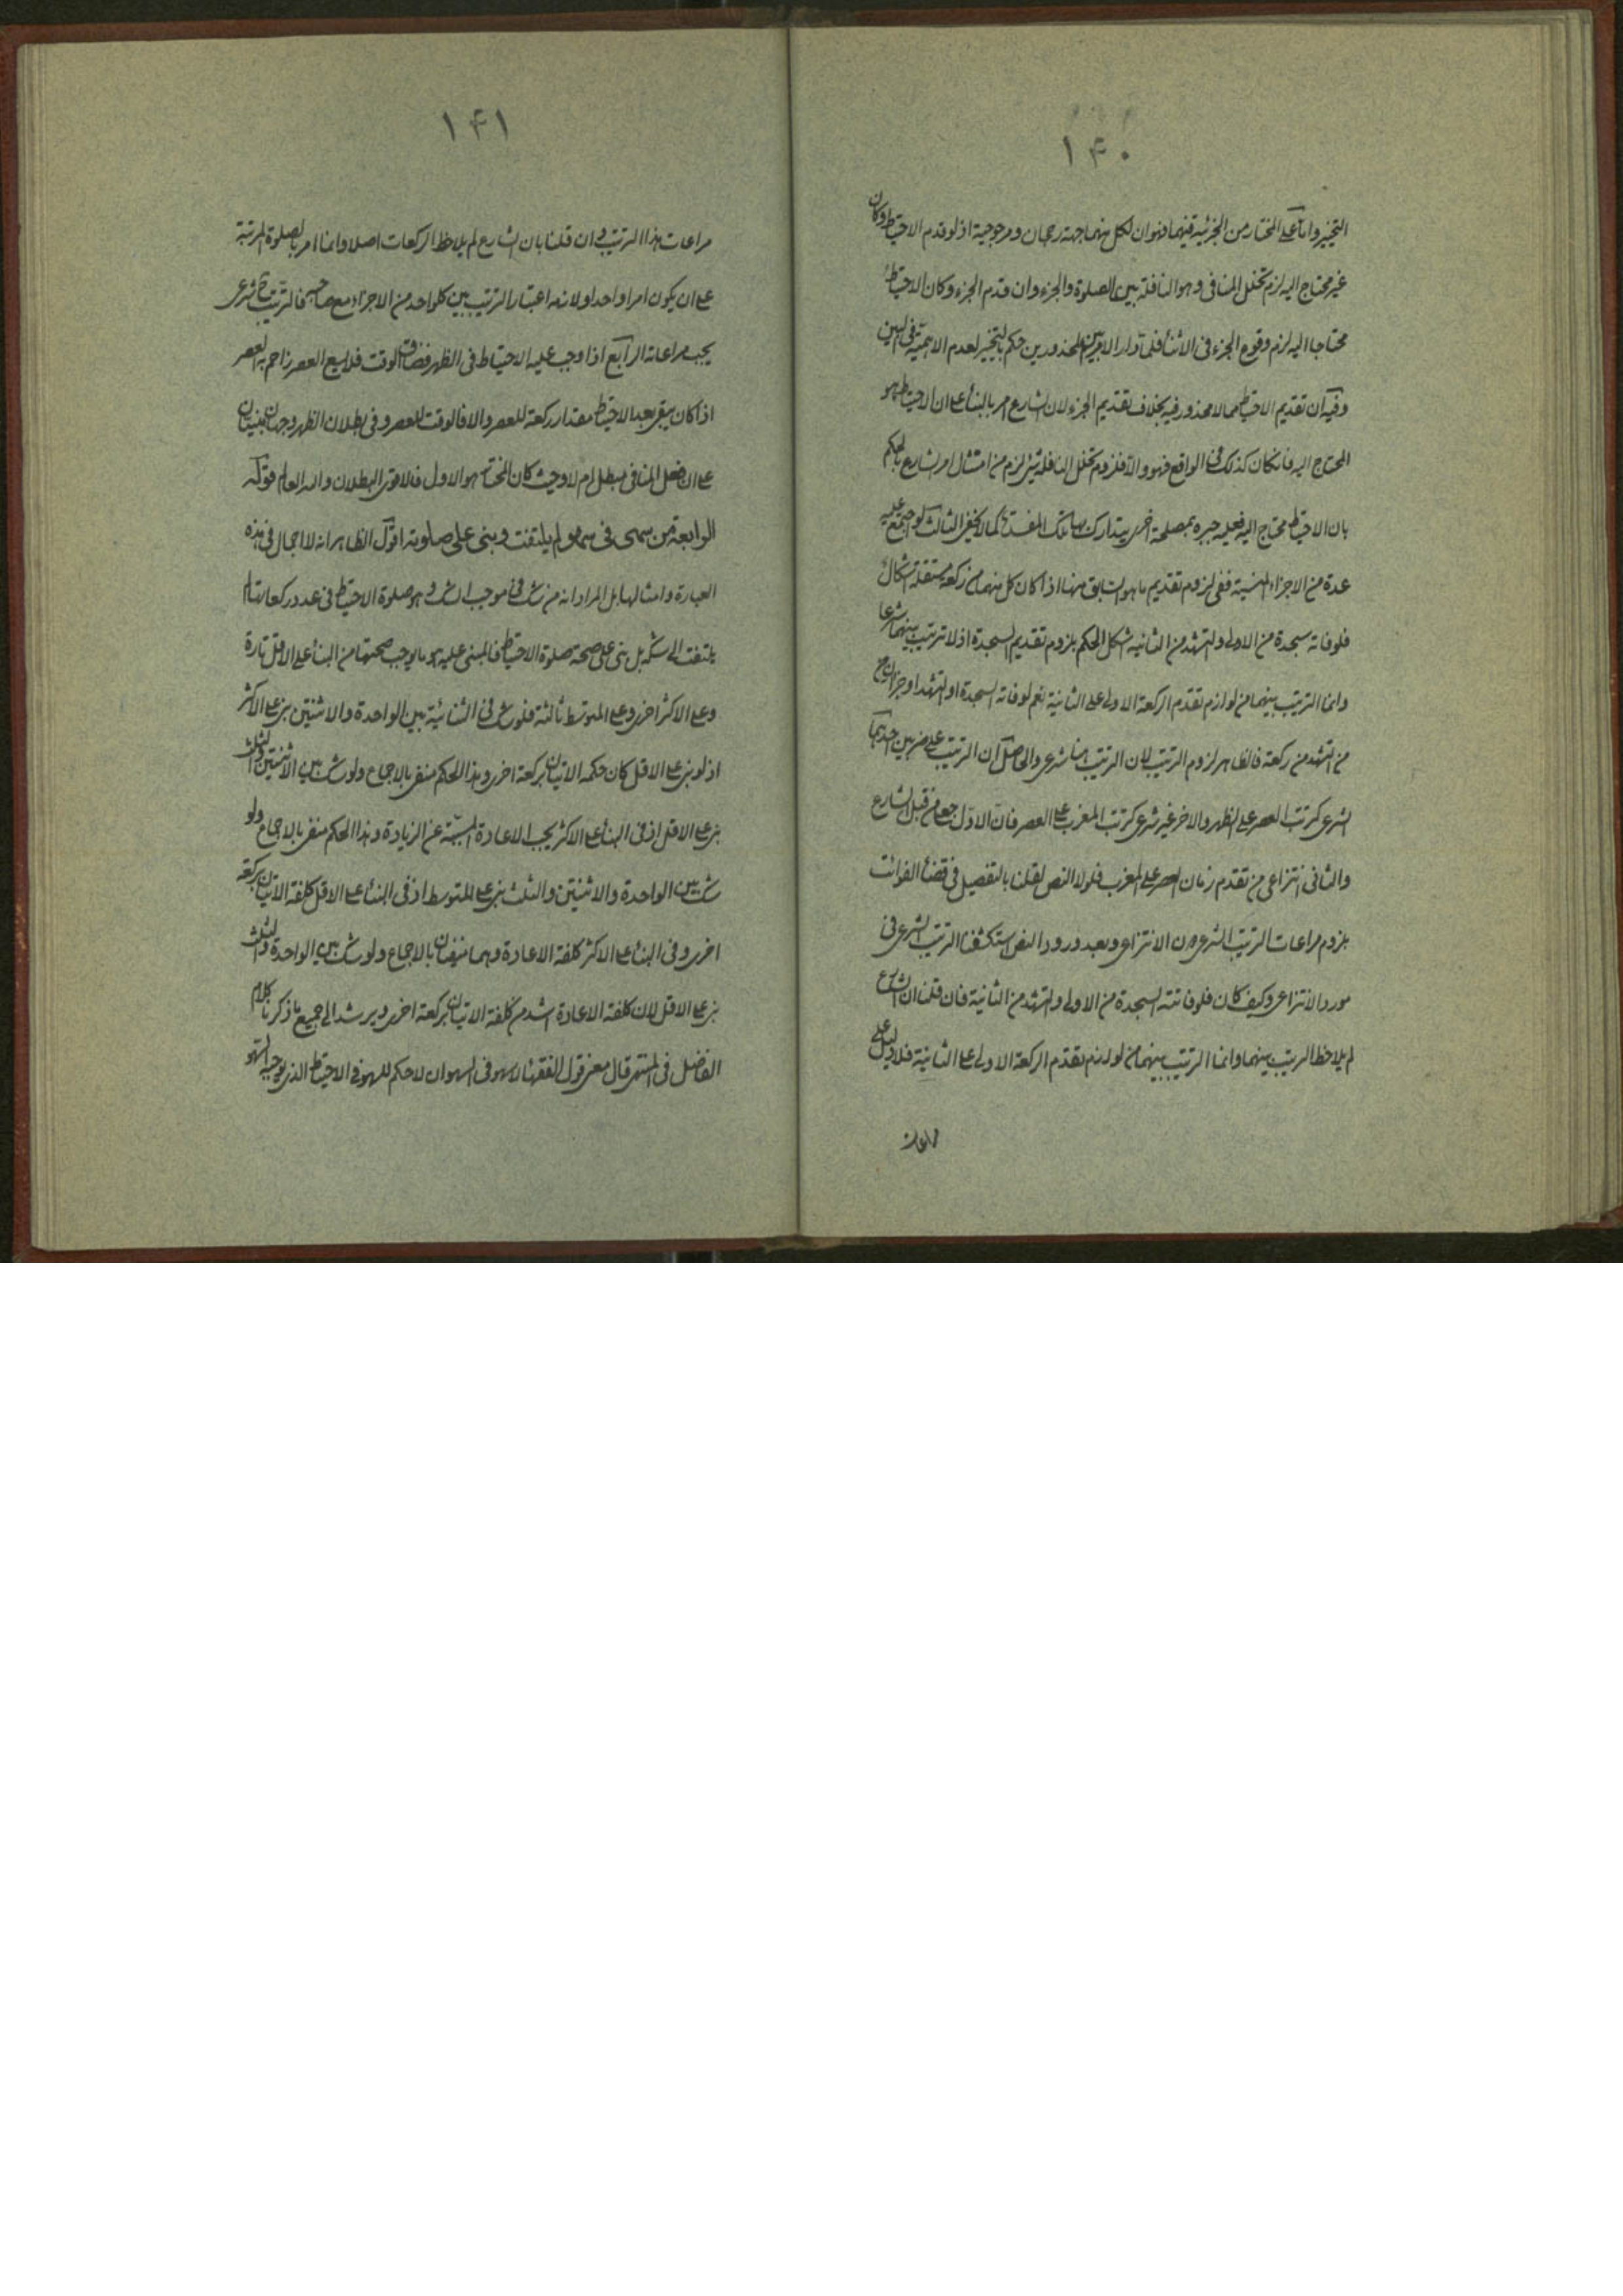 ١٤٠
التخيير واما على المختار من الجزئية فيهما فهو ان لكل منهما جهة رجحان ومرجوحية اذ لو قدم الاحتياط وكان
غير محتاج اليه لزم تخلل المنافى وهو النافلة بين الصلوة والجزء وان قدم الجزء وكان الاحتياط
محتاجا اليه لزم وقوع الجزء فى الاثناء فلما دار الامر بين المحذورين حكم بالتخيير لعدم الاهمية فى البين
وفيه ان تقديم الاحتياط مما لا محذور فيه بخلاف تقديم الجزء لان الشارع امر بالبناء على ان الاحتياط هو
المحتاج اليه فان كان كذلك فى الواقع فهو والا فلزوم تخلل النافلة شئ لزم من امتثال امر الشارع بالحكم
بان الاحتياط محتاج اليه فعليه جبره بمصلحة اخرى يتدارك بها تلك المفسدة كما لا يخفى الثالث لو اجتمع عليه
عدة من الاجزاء المنسية ففى لزوم تقديم ما هو السابق منها اذا كان كل منهما من ركعة مستقلة اشكال
فلو فاته سجدة من الاولى والتشهد من الثانيه اشكل الحكم بلزوم تقديم السجدة اذ لا ترتيب بينهما شرعا
وانما الترتيب بينهما من لوازم تقدم الركعة الاولى على الثانية نعم لو فاته السجدة او التشهد او جزان
من التشهد من ركعة فالظاهر لزوم الترتيب لان الترتيب هنا شرعى والحاصل ان الترتيب على ضربين احدهما
الشرعى كترتب العصر على الظهر والاخر غير شرعى كترتب المغرب على العصر فان الاول جعل من قبل الشارع
والثانى انتزاعى من تقدم زمان العصر على المغرب فلولا النص لقلنا بالتفصيل فى قضاء الفوائت
بلزوم مراعات الترتيب الشرعى دون الانتزاعى وبعد ورود النص استكشفنا الترتيب الشرعى فى
مورد الانتزاعى وكيف كان فلو فاتته السجدة من الاولى والتشهد من الثانية فان قلنا ان الشارع
لم يلاحظ الترتيب بينهما وانما الترتيب بينهما من لوازم تقدم الركعة الاولى على الثانية فلا دليل على
١٤١
مراعات هذا الترتيب وان قلنا بان الشارع لم يلاحظ الركعات اصلا وانما امر بالصلوة المرتبة
على ان يكون امرا واحدا ولازمه اعتبار الترتيب بين كل واحد من الاجزاء مع صاحبه فالترتيب ح شرعى
يجب مراعاته الرابع اذا وجب عليه الاحتياط فى الظهر فضاق الوقت فلا يسع العصر زاحم به العصر
اذا كان يبقى بعد الاحتياط مقدار ركعة للعصر والا فالوقت للعصر وفى بطلان الظهر وجهان مبنيان
على ان فعل المنافى مبطل ام لا وحيث كان المختار هو الاول فالاقوى البطلان والله العالم قوله
الرابعة من سهى فى سهو لم يلتفت وبنى على صلوته اقول الظاهر انه لا اجمال فى هذه
العبارة وامثالها بل المراد انه من شك فى موجب الشك وهو صلوة الاحتياط فى عدد ركعاتها لم
يلتفت الى شكه بل بنى على صحة صلوة الاحتياط فالمبنى عليه هو ما يوجب صحتها من البناء على الاقل تارة
وعلى الاكثر اخرى وعلى المتوسط ثالثة فلو شك فى الثنائية بين الواحدة والاثنتين بنى على الاكثر
اذ لو بنى على الاقل كان حكمه الاتيان بركعة اخرى وهذا الحكم منفى بالاجماع ولو شك بين الاثنتين والثلث
بنى على الاقل اذ فى البناء على الاكثر يجب الاعادة المسببة عن الزيادة وهذا الحكم منفى بالاجماع ولو
شك بين الواحدة والاثنتين والثلث بنى على المتوسط اذ فى البناء على الاقل كلفة الاتيان بركعة
اخرى وفى البناء على الاكثر كلفة الاعادة وهما منفيان بالاجماع ولو شك بين الواحدة والثلث
بنى على الاقل لان كلفة الاعادة اشد من كلفة الاتيان بركعة اخرى ويرشد الى جميع ما ذكرنا كلام
الفاضل فى المنتهى قال معنى قول الفقهاء لا سهو فى السهو ان لا حكم للسهو فى الاحتياط الذى يوجبه السهو